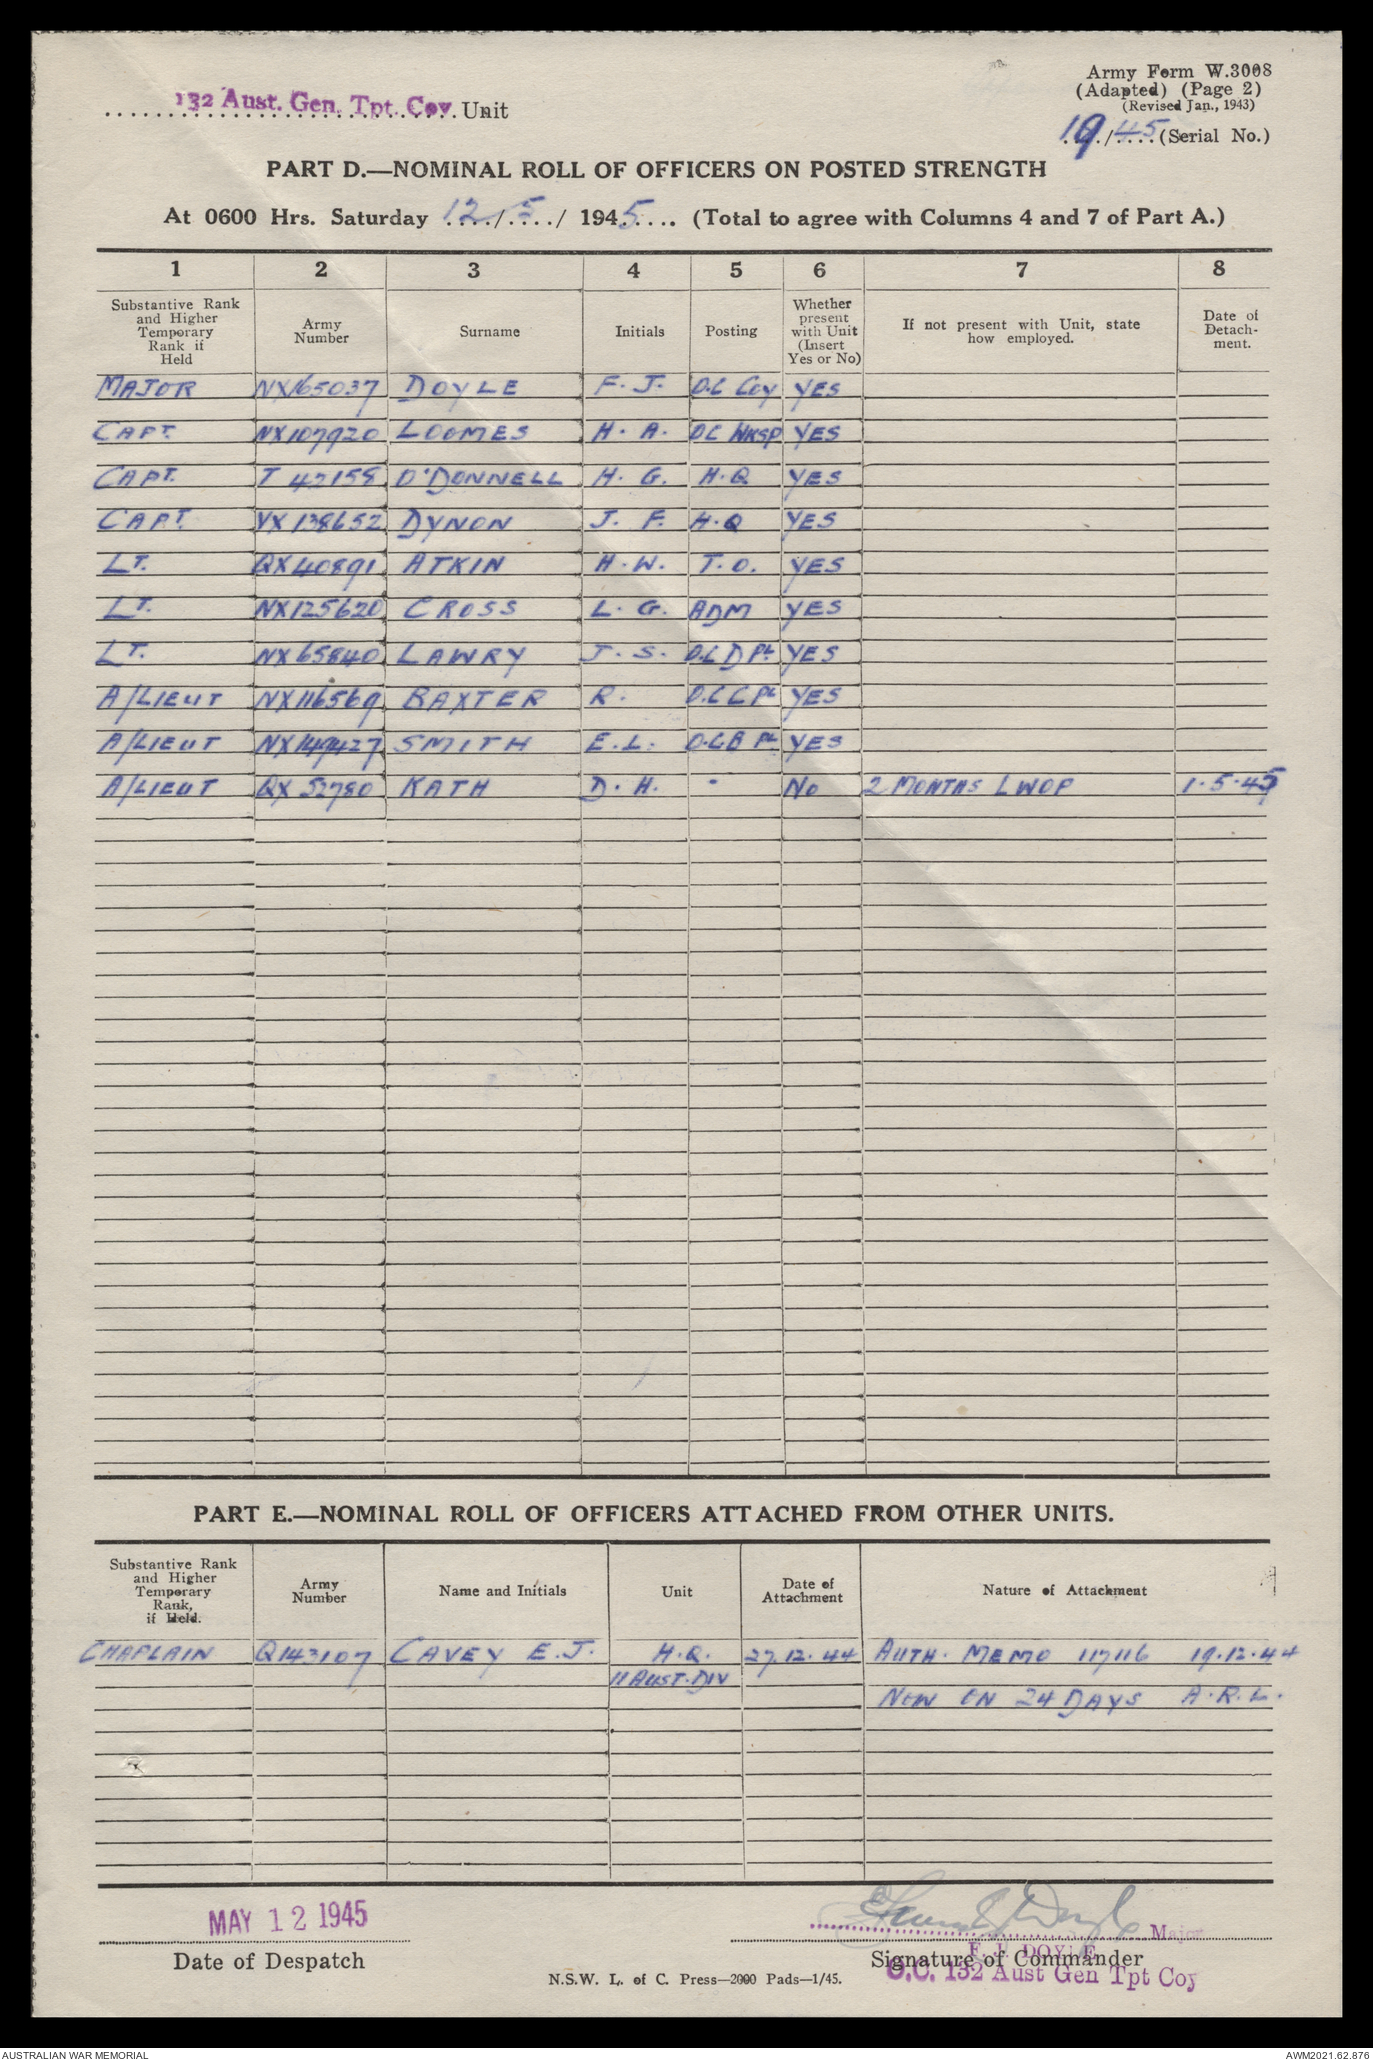 Army Form W.3008
(Adapted) (Page 2)
(Revised Jan., 1943)
132 Aust. Gen. Tpt. Coy. Unit
19/45 (Serial No.)
PART D.—NOMINAL ROLL OF OFFICERS ON POSTED STRENGTH
At 0600 Hrs. Saturday 12/5/1945.... (Total to agree with Columns 4 and 7 of Part A.)
1 2 3 4 5 6 7 8
Substantive Rank and Higher Temporary Rank if Held | Army Number | Surname | Initials | Posting | Whether present with Unit (Insert Yes or No) | If not present with Unit, state how employed. | Date of Detach-ment.
MAJOR NX165037 DOYLE F. J. O.C COY YES
CAPT. NX107920 LOOMES H. A. OC WKSP YES
CAPT. T 42158 O'DONNELL H. G. H.Q YES
CAPT. VX138652 DYNON J. F. H.Q YES
LT. QX40891 ATKIN H.W. T.O. YES
LT. NX125620 CROSS L. G. ADM YES
LT. NX65840 LAWRY J. S. O.C D PL YES
A/LIEUT NX116569 BAXTER R. O.C C PL YES
A/LIEUT NX149427 SMITH E.L. O.C B PL YES
A/LIEUT QX52780 KATH D. H. - NO 2 MONTHS LWOP 1.5.45
PART E.—NOMINAL ROLL OF OFFICERS ATTACHED FROM OTHER UNITS.
Substantive Rank and Higher Temporary Rank, if Held. | Army Number | Name and Initials | Unit | Date of Attachment | Nature of Attachment
CHAPLAIN Q143107 CAVEY E.J. H.Q. 27.12.44 AUTH. MEMO 117116 19.12.44
11 AUST. DIV
NOW ON 24 DAYS A.R.L.
MAY 12 1945
Major
Date of Despatch
F. J. DOYLE
Signature of Commander
O.C. 132 Aust Gen Tpt Coy
N.S.W. L. of C. Press—2000 Pads—1/45.
AUSTRALIAN WAR MEMORIAL
AWM2021.62.876